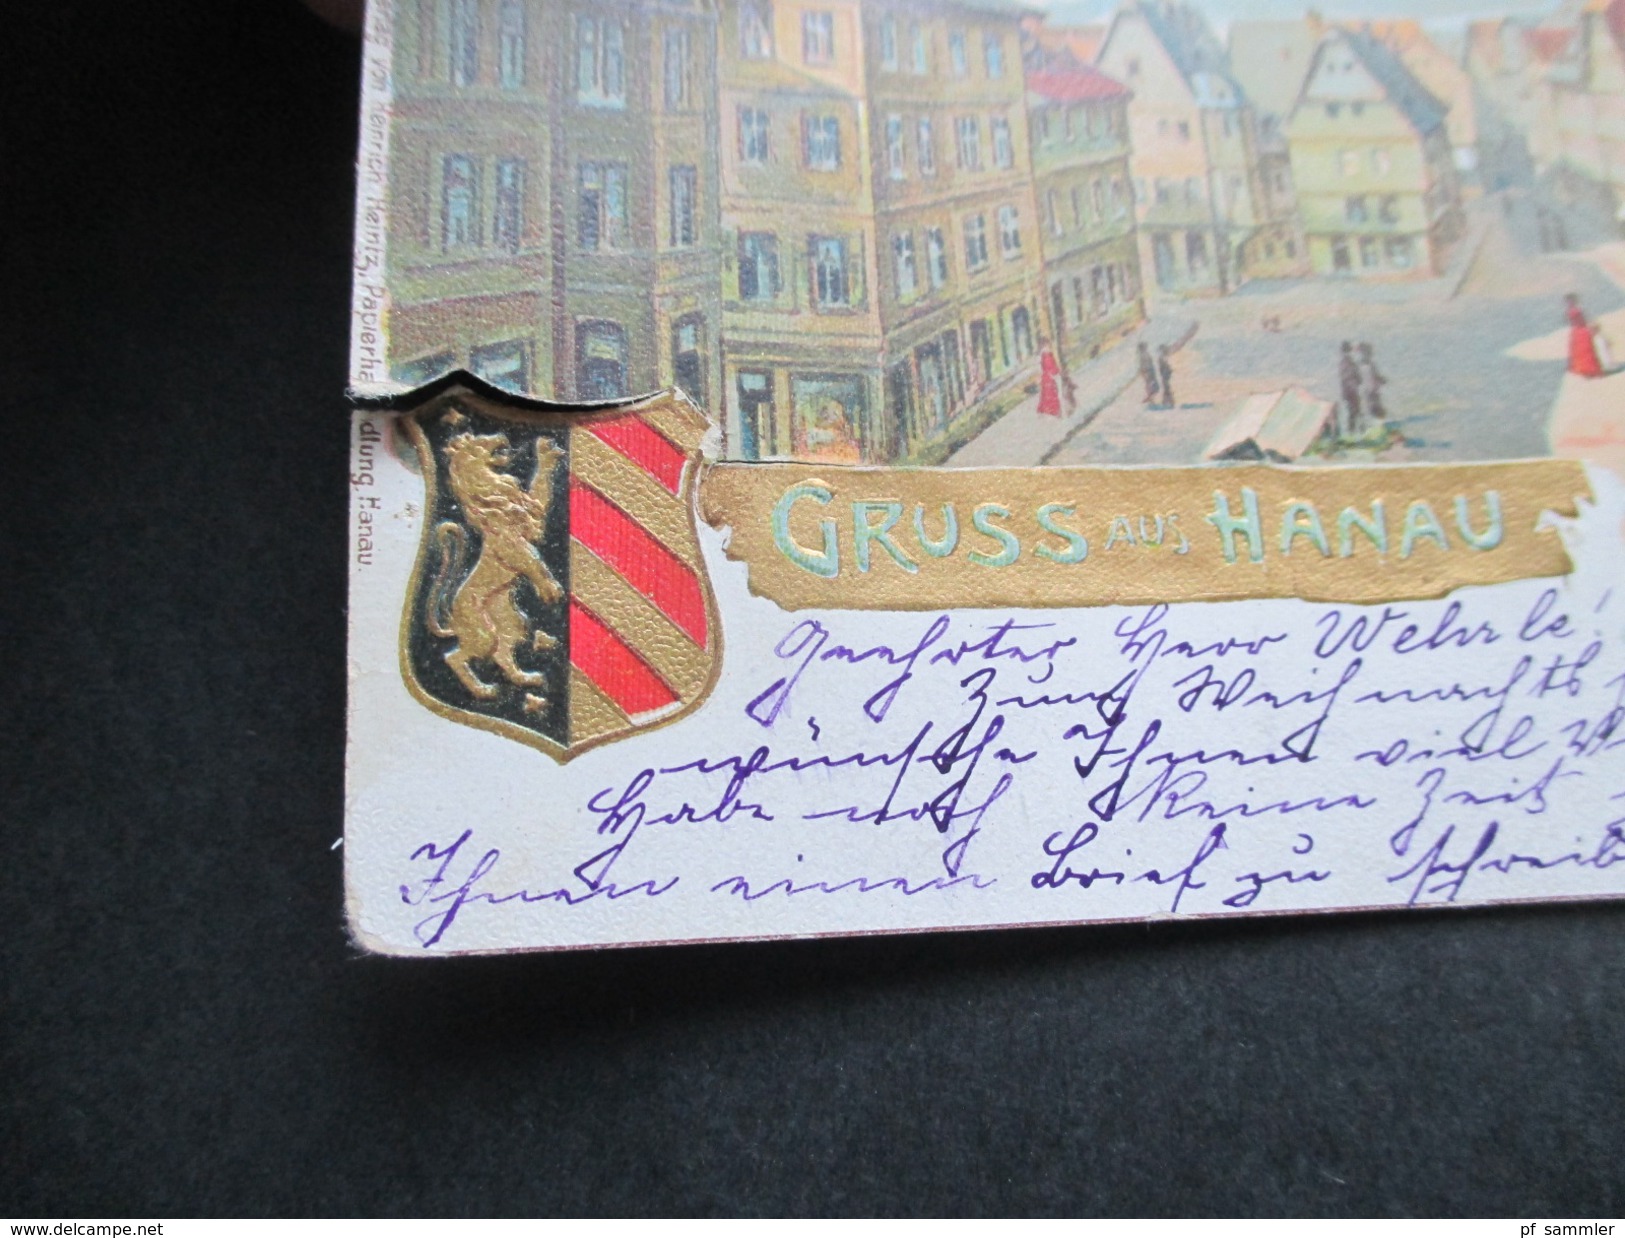 von Heinrich Heintz, Papierha dlung, Hanau.
GRUSS AUS HANAU
Geehrter Herr Wehrle!
Zum Weihnachts
wünsche Ihnen viel
Habe noch keine Zeit
Ihnen einen Brief zu schreib
delcampe.net
pf_sammler